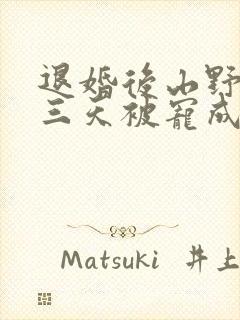 退婚後山野
三天被寵成
Matsuki 井上